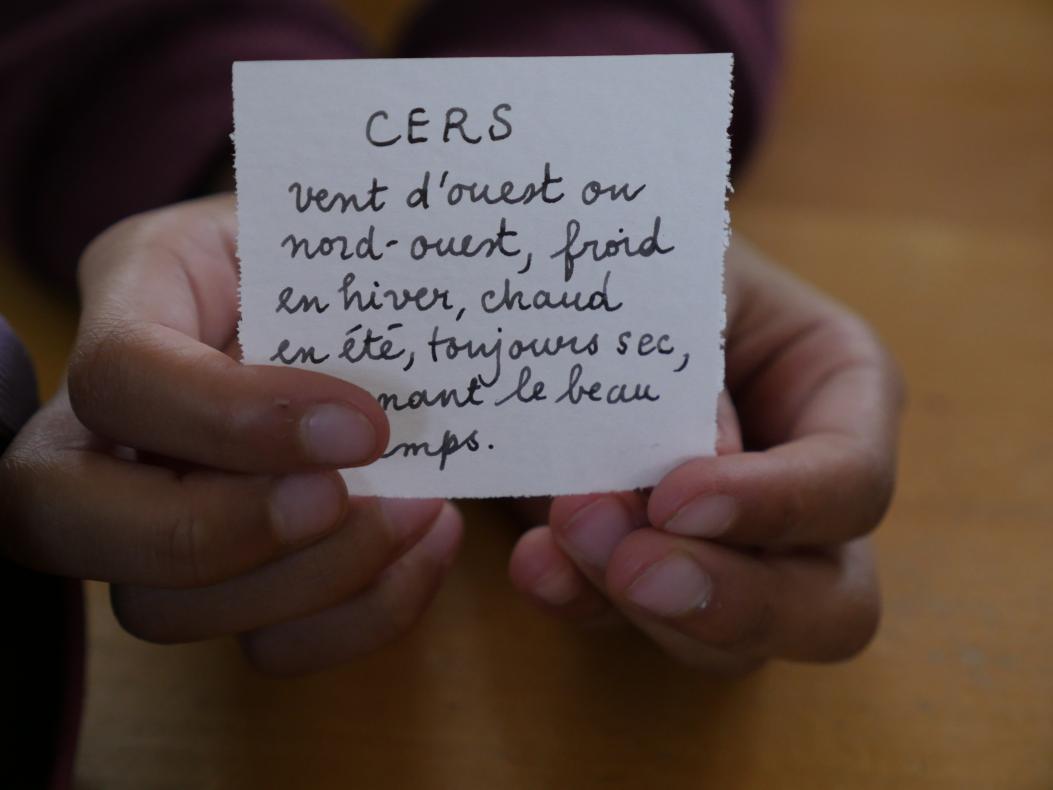 CERS
vent d'ouest ou
nord-ouest, froid
en hiver, chaud
en été, toujours sec,
le beau